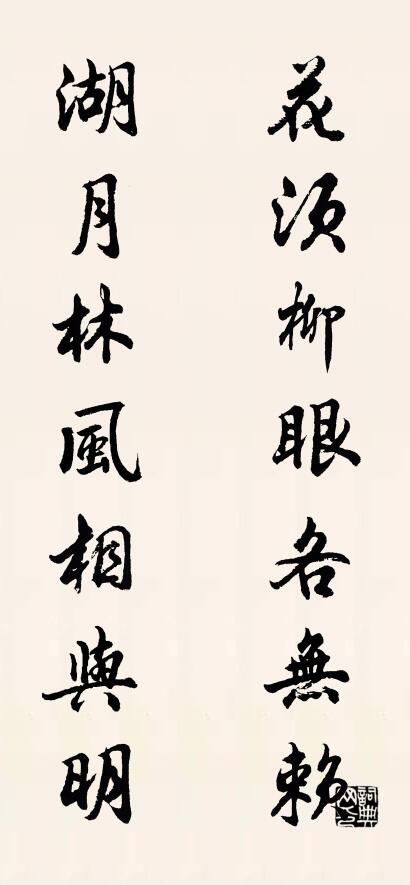 花須柳眼各無賴
湖月林風相與明
詞典